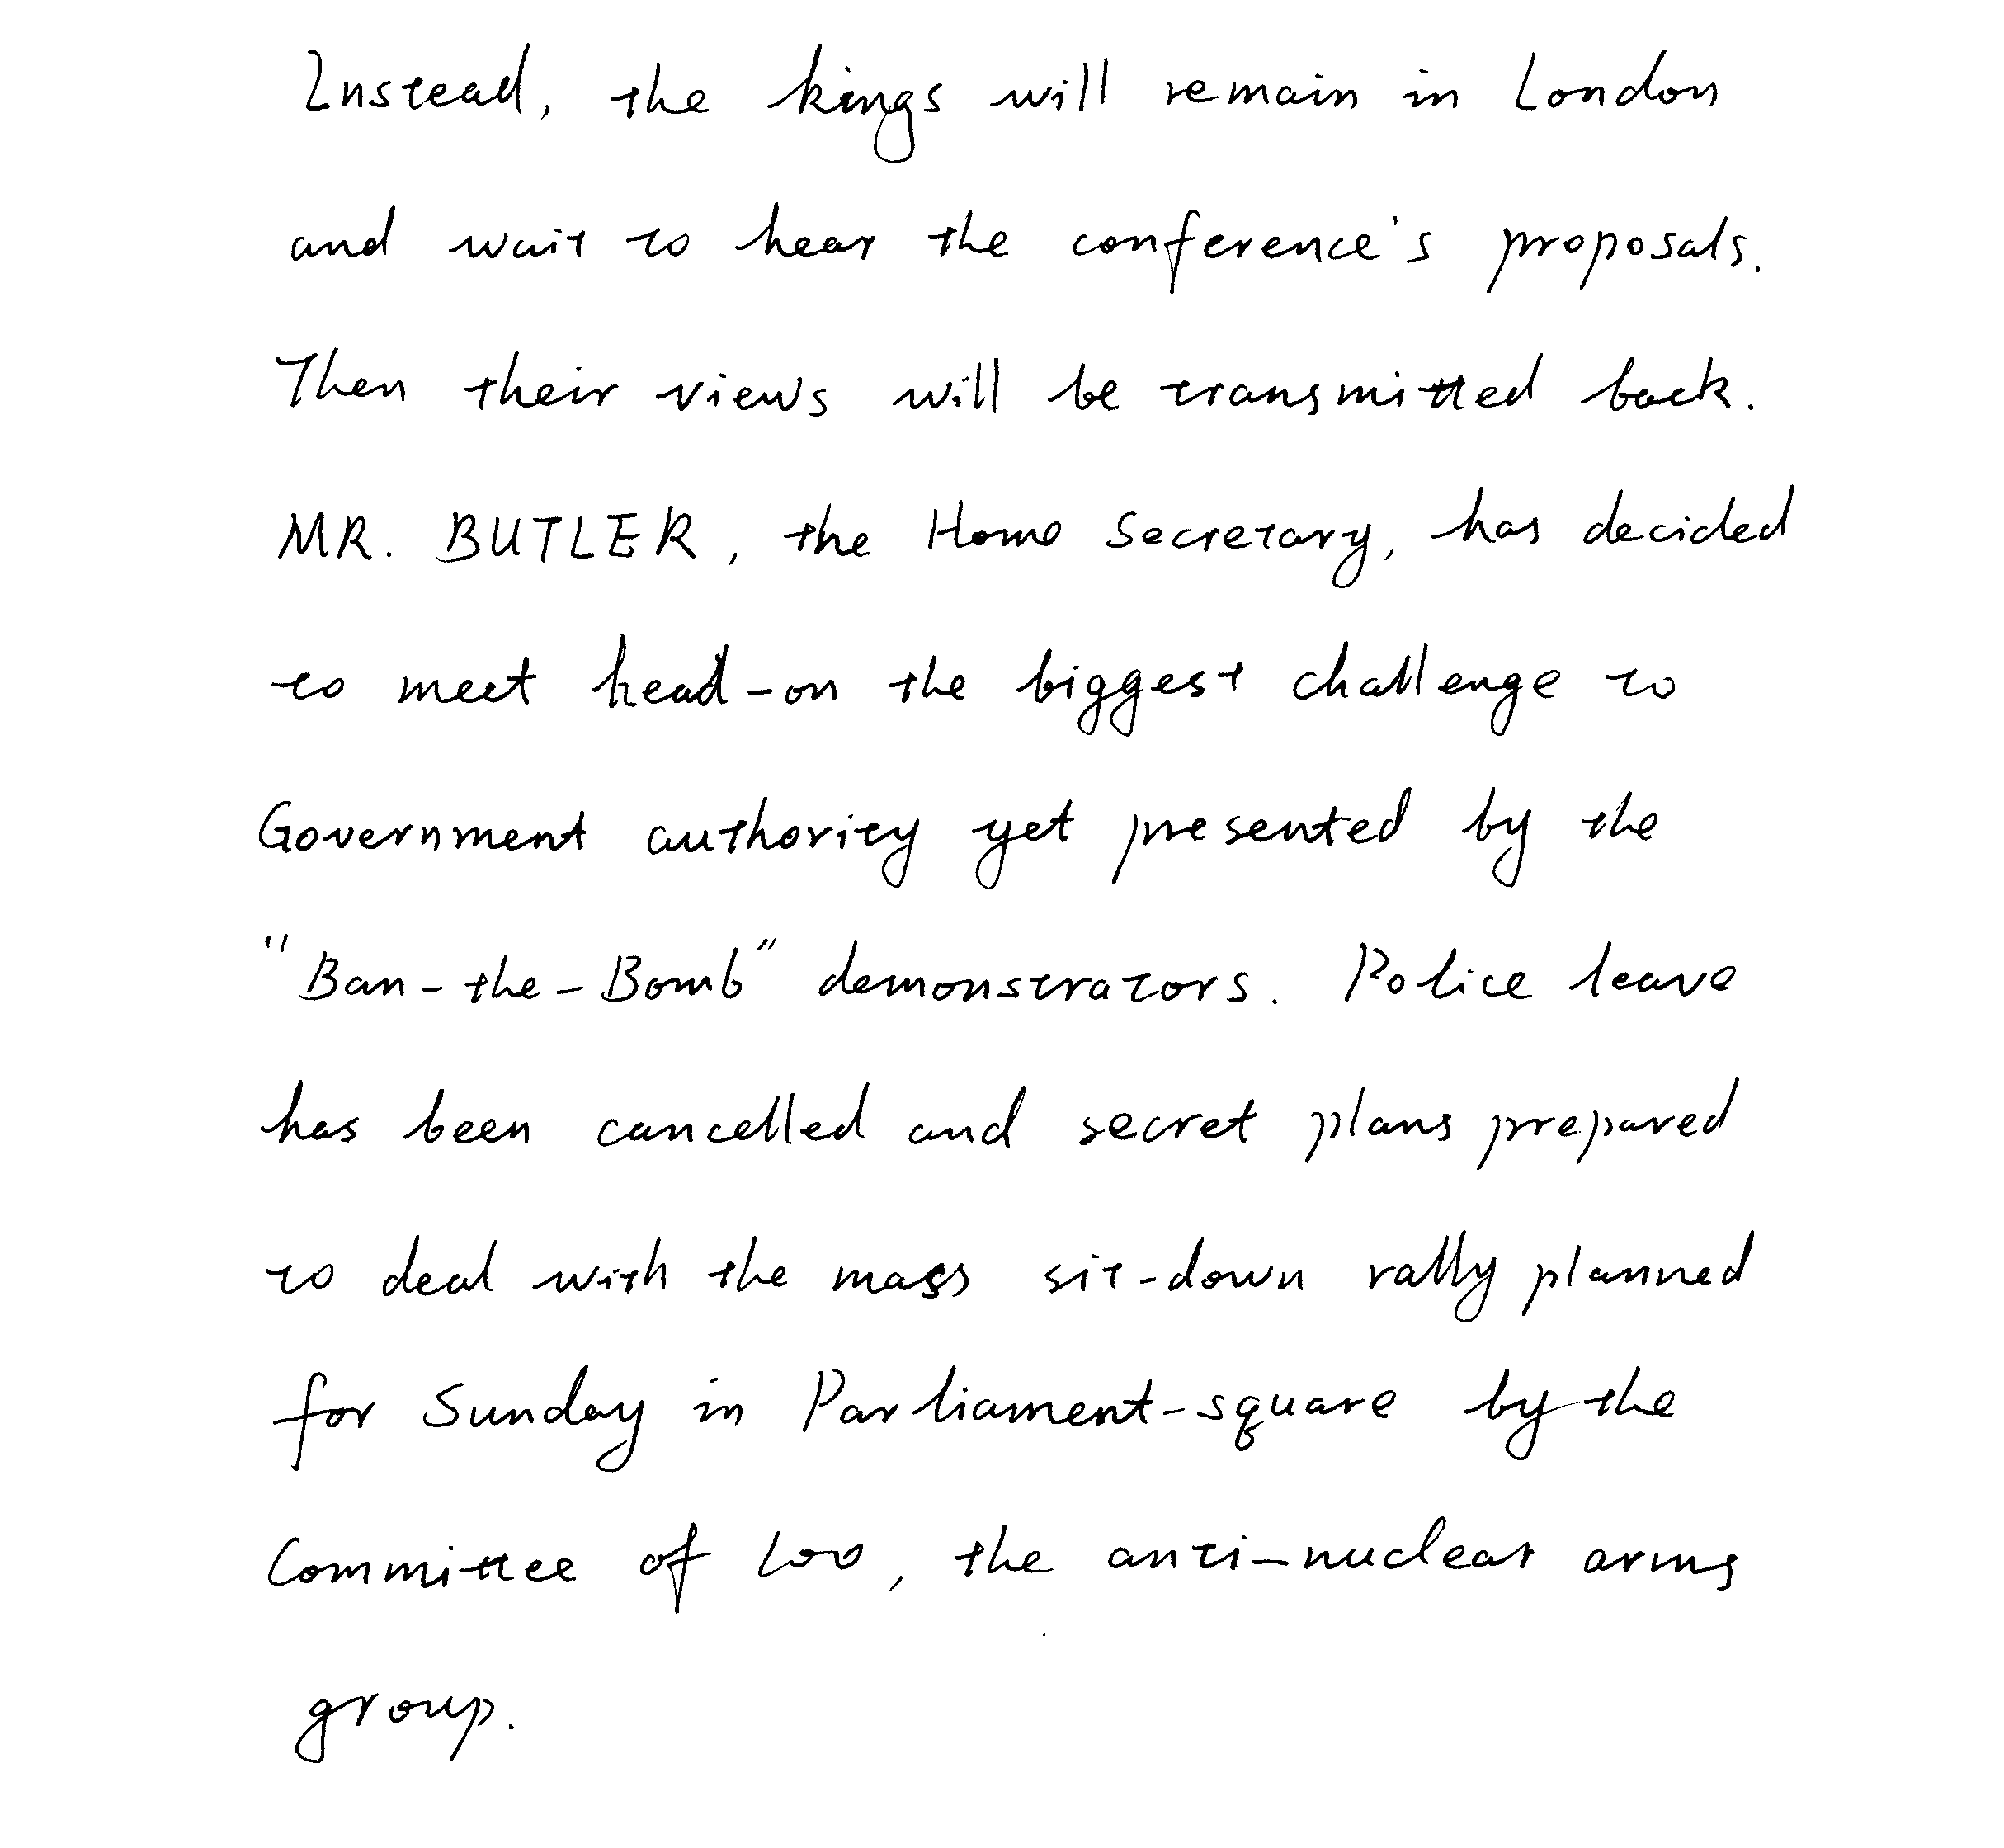 Instead, the kings will remain in London
and wait to hear the conference's proposals.
Then their views will be transmitted back.
MR. BUTLER, the Home Secretary, has decided
to meet head-on the biggest challenge to
Government authority yet presented by the
"Ban-the-Bomb" demonstrators. Police leave
has been cancelled and secret plans prepared
to deal with the mass sit-down rally planned
for Sunday in Parliament-square by the
Committee of 100, the anti-nuclear arms
group.